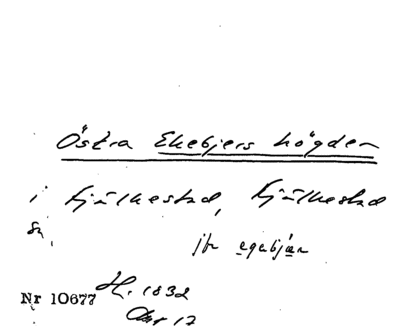 Östra Ekebjers högden
i Fjälkestad, Fjälkestad
sn,
jfr egebjär
Nr 10677 H. 1832
Akt 17